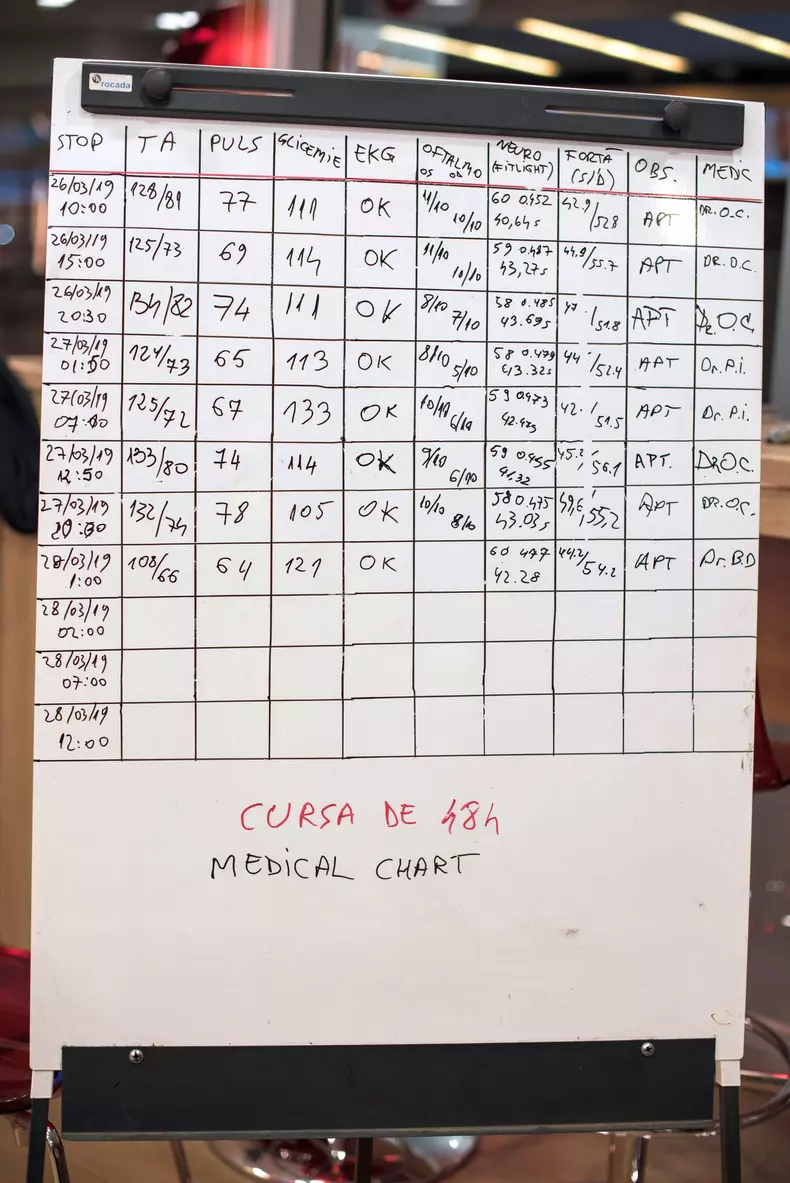 rocada
STOP TA PULS GLICEMIE EKG OFTALMO OS OD NEURO (FITLIGHT) FORTĂ (S/D) OBS. MEDIC
26/03/19 10:00 128/81 77 111 OK 10/10 60 0.452 40,64s 42.9/52.8 APT DR.O.C.
26/03/19 15:00 125/73 69 114 OK 11/10 10/10 59 0.487 43,27s 44.9/55.7 APT DR.O.C.
26/03/19 20:30 134/82 74 111 OK 8/10 7/10 58 0.485 43.69s 47 /51.8 APT Dr.O.C.
27/03/19 124/73 65 113 OK 8/10 5/10 58 0.479 43.32s 44 /52.4 APT Dr.P.i.
27/03/19 125/72 67 133 OK 10/10 6/10 59 0.473 42. /51.5 APT Dr.P.i.
27/03/19 12:50 133/80 74 114 OK 9/10 6/10 59 0.455 45.2/56.1 APT. DR.O.C.
27/03/19 132/74 78 105 OK 10/10 8/10 58 0.475 43.03s 49,6/55,2 APT DR.O.C.
28/03/19 1:00 108/66 64 121 OK 60 477 42.28 44.2/54.2 APT Dr.B.D
28/03/19 02:00
28/03/19 07:00
28/03/19 12:00
CURSA DE 48h
MEDICAL CHART